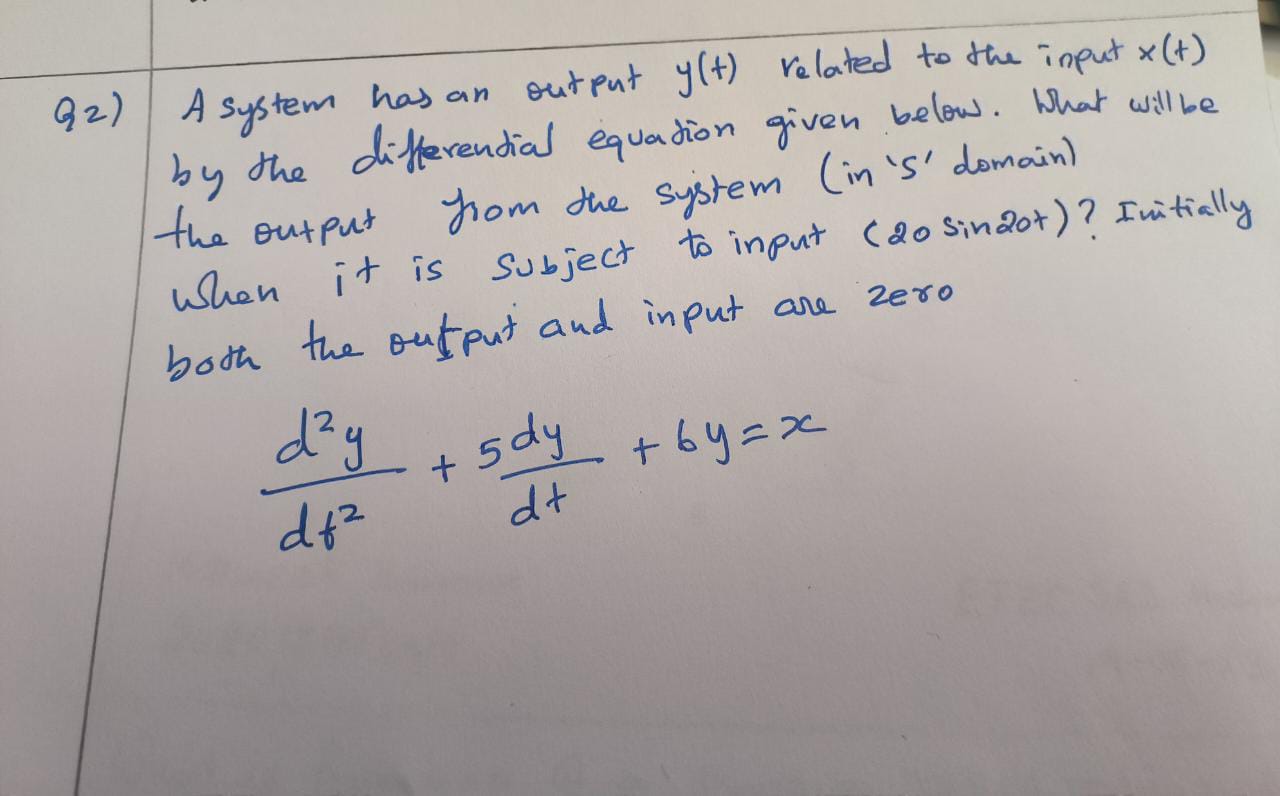 Q2) A system has an output y(t) related to the input x(t)
by the differential equation given below. What will be
the output from the system (in 's' domain)
when it is subject to input (20 sin20t)? Initially
both the output and input are zero
d²y/dt² + 5 dy/dt + 6y = x